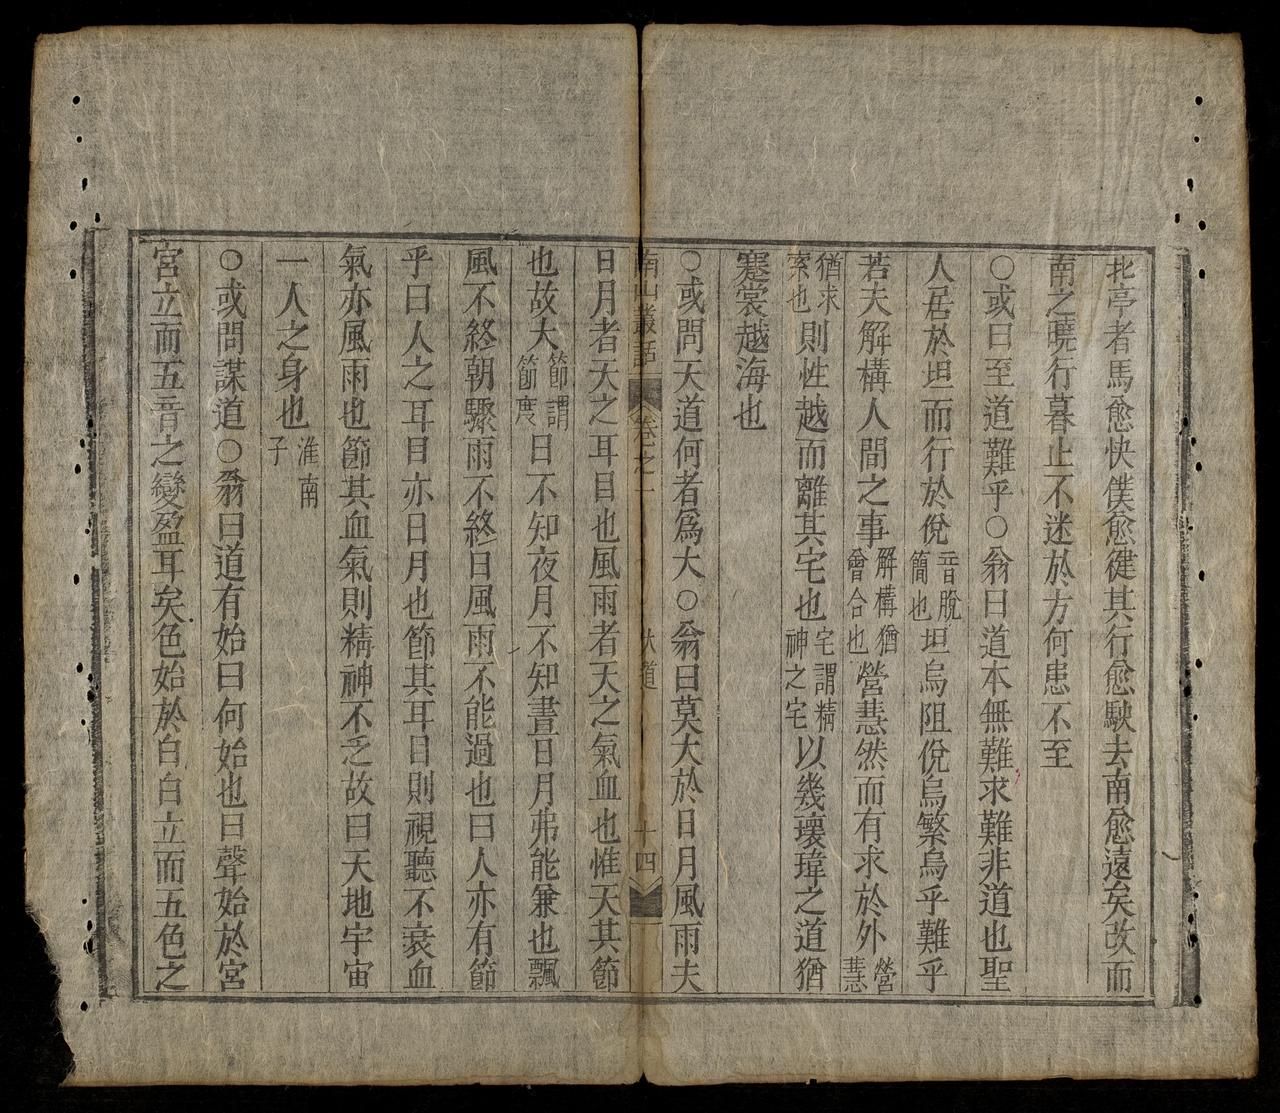 北亭者馬愈快僕愈健其行愈駛去南愈遠矣改而
南之曉行暮止不迷於方何患不至
○或曰至道難乎○翁曰道本無難求難非道也聖
人居於坦而行於侻音脫簡也坦烏阻侻烏繁烏乎難乎
若夫解構人間之事解構猶會合也營慧然而有求於外營慧
猶求索也則性越而離其宅也宅謂精神之宅以幾壞瑋之道猶
蹇裳越海也
○或問天道何者爲大○翁曰莫大於日月風雨夫
南山叢話 卷之一 道 十四
日月者天之耳目也風雨者天之氣血也惟天其節
也故大節謂節度日不知夜月不知晝日月弗能兼也飄
風不終朝驟雨不終日風雨不能過也曰人亦有節
乎曰人之耳目亦日月也節其耳目則視聽不衰血
氣亦風雨也節其血氣則精神不乏故曰天地宇宙
一人之身也淮南子
○或問謀道○翁曰道有始曰何始也曰聲始於宮
宮立而五音之變盈耳矣色始於白白立而五色之